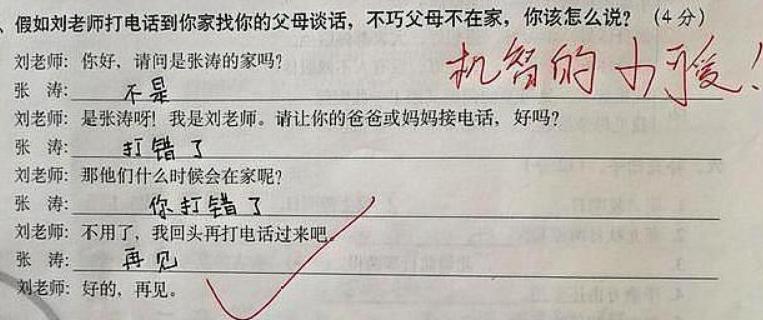 、假如刘老师打电话到你家找你的父母谈话，不巧父母不在家，你该怎么说？（4分）
刘老师：你好，请问是张涛的家吗？
机智的小可爱！
张 涛：不是
刘老师：是张涛呀！我是刘老师。请让你的爸爸或妈妈接电话，好吗？
张 涛：打错了
刘老师：那他们什么时候会在家呢？
张 涛：你打错了
刘老师：不用了，我回头再打电话过来吧。
张 涛：再见
刘老师：好的，再见。